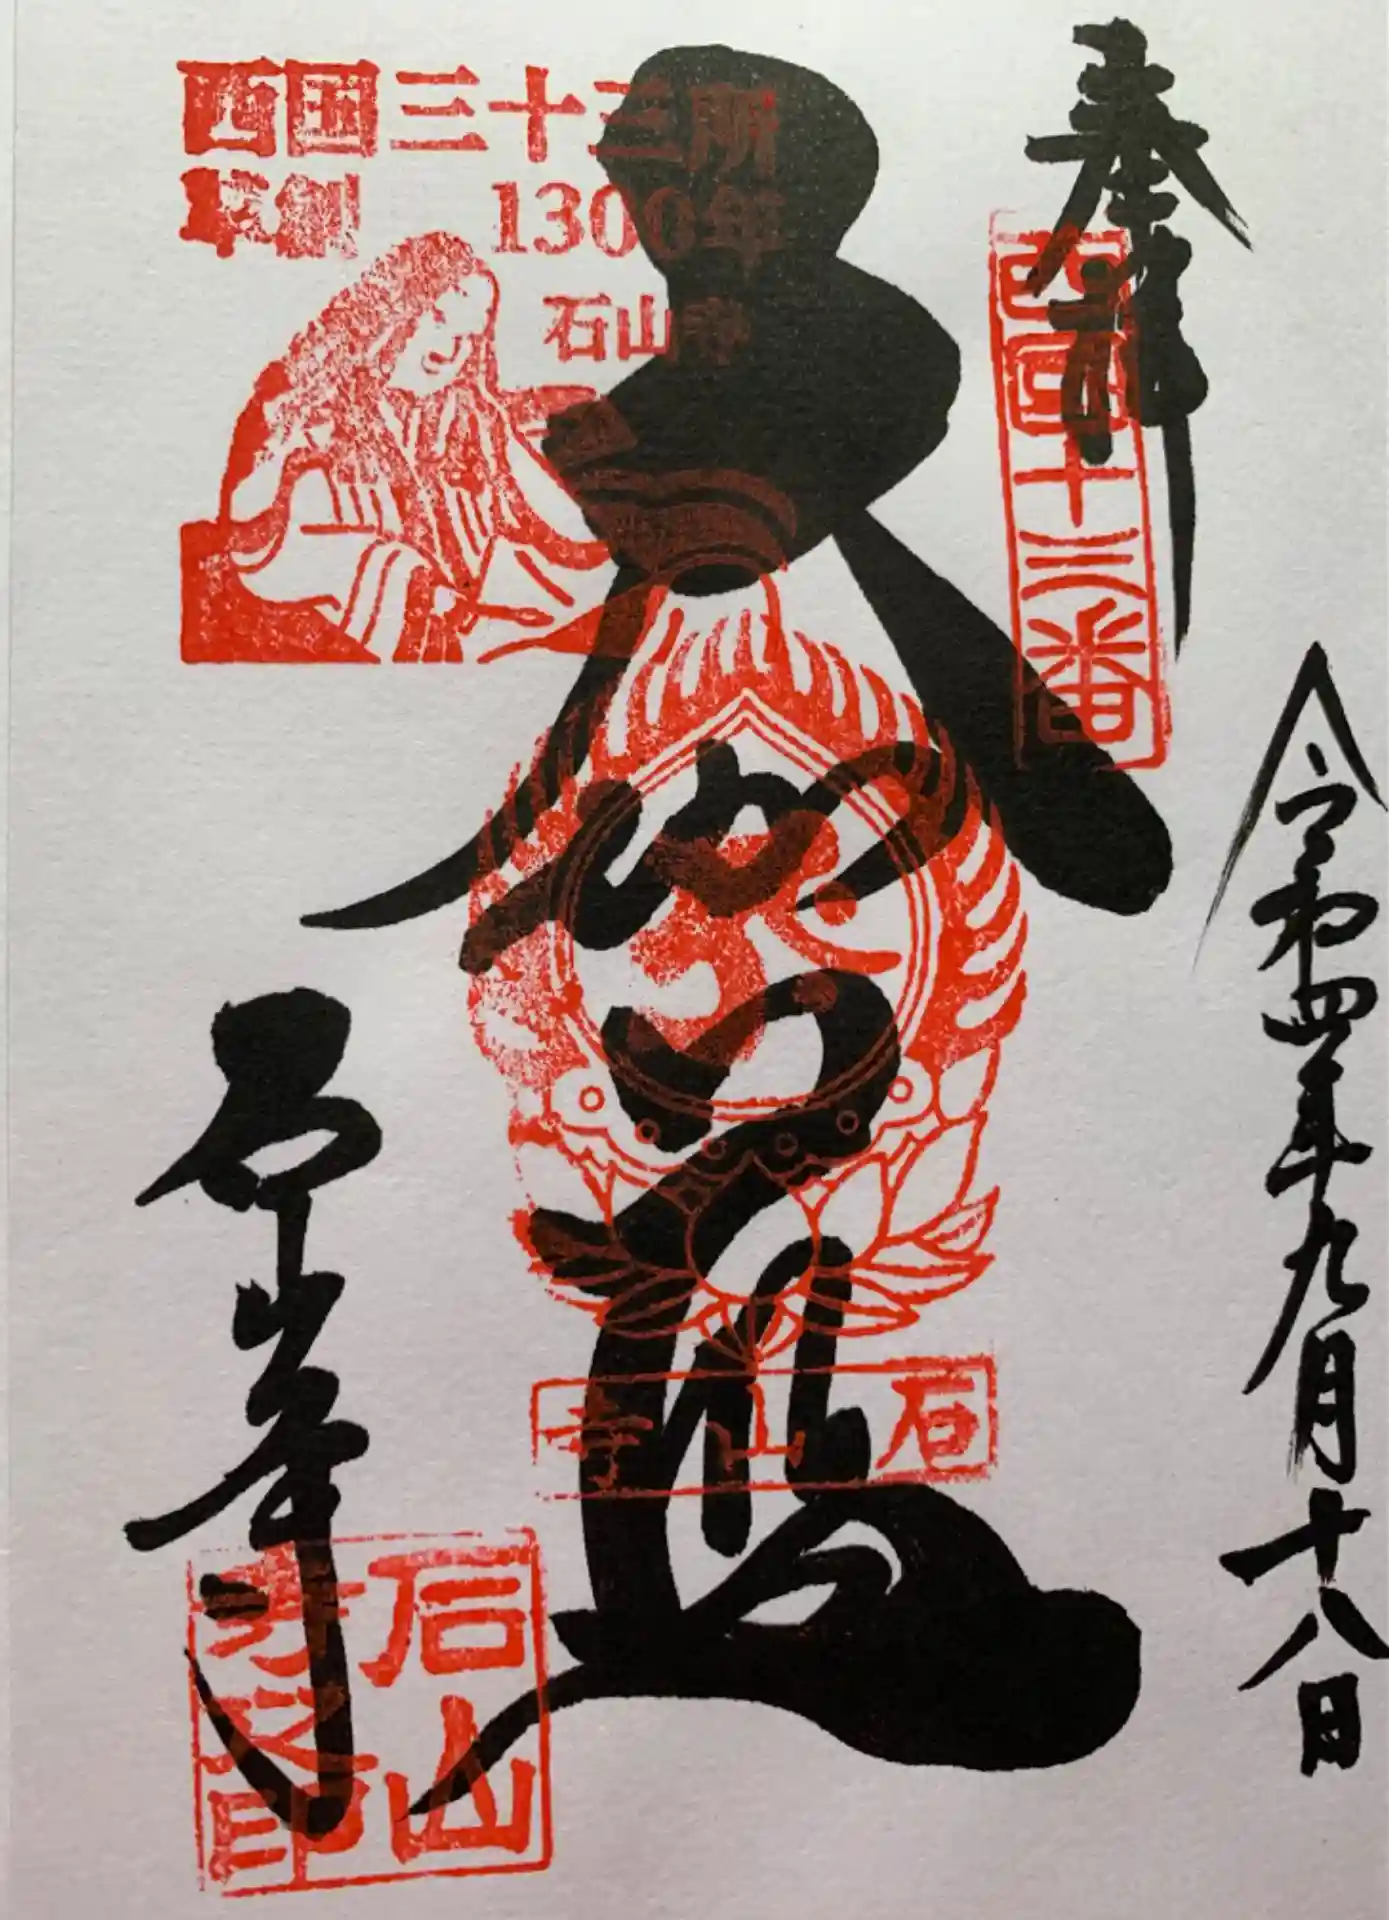 奉拝
西国十三番
令和四年九月十八日
大伽藍
西国三十三所
草創 1300年
石山寺
石山寺
石山寺
石山寺之印